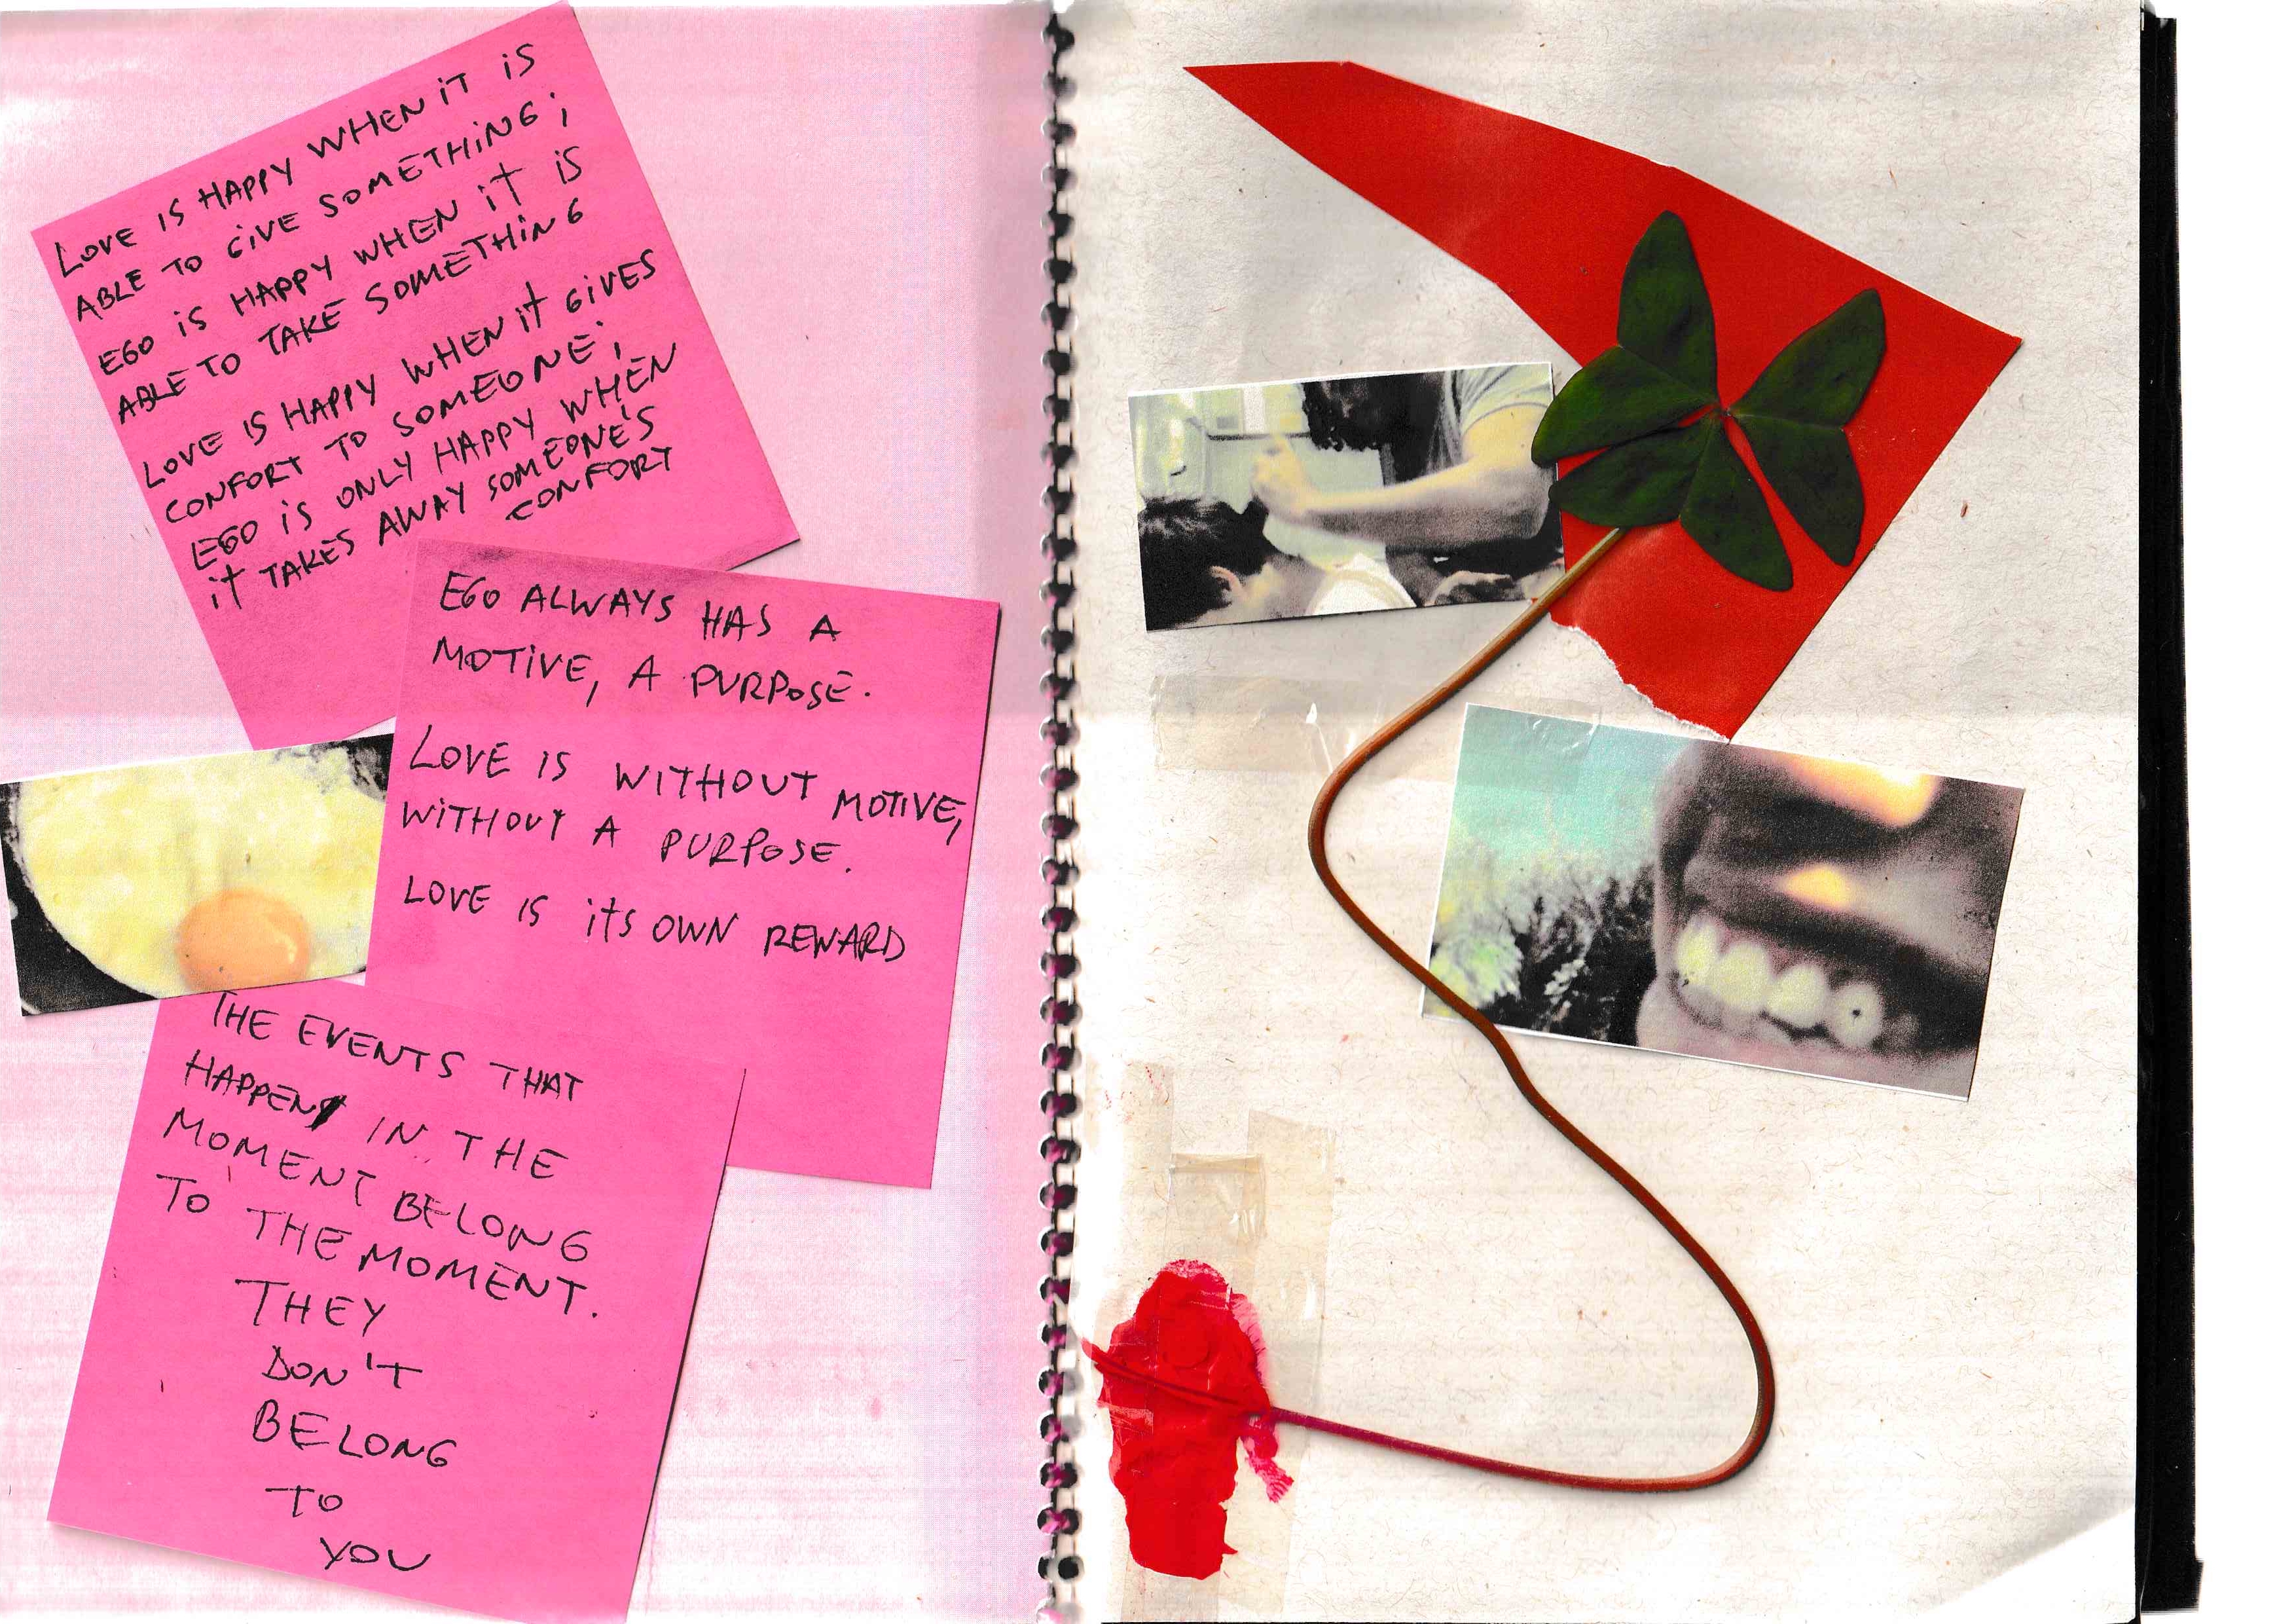 LOVE IS HAPPY WHEN iT iS
ABLE TO GiVE SOMETHiNG;
EGO iS HAPPY WHEN iT iS
ABLE TO TAKE SOMETHiNG
LOVE IS HAPPY WHEN iT GiVES
CONFORT TO SOMEONE;
EGO iS ONLY HAPPY WHEN
iT TAKES AWAY SOMEONE'S
CONFORT
EGO ALWAYS HAS A
MOTiVE, A PURPOSE.
LOVE IS WITHOUT MOTIVE,
WiTHOUT A PURPOSE.
LOVE IS iTS OWN REWARD
THE EVENTS THAT
HAPPEN IN THE
MOMENT BELONG
TO THE MOMENT.
THEY
DON'T
BELONG
TO
YOU